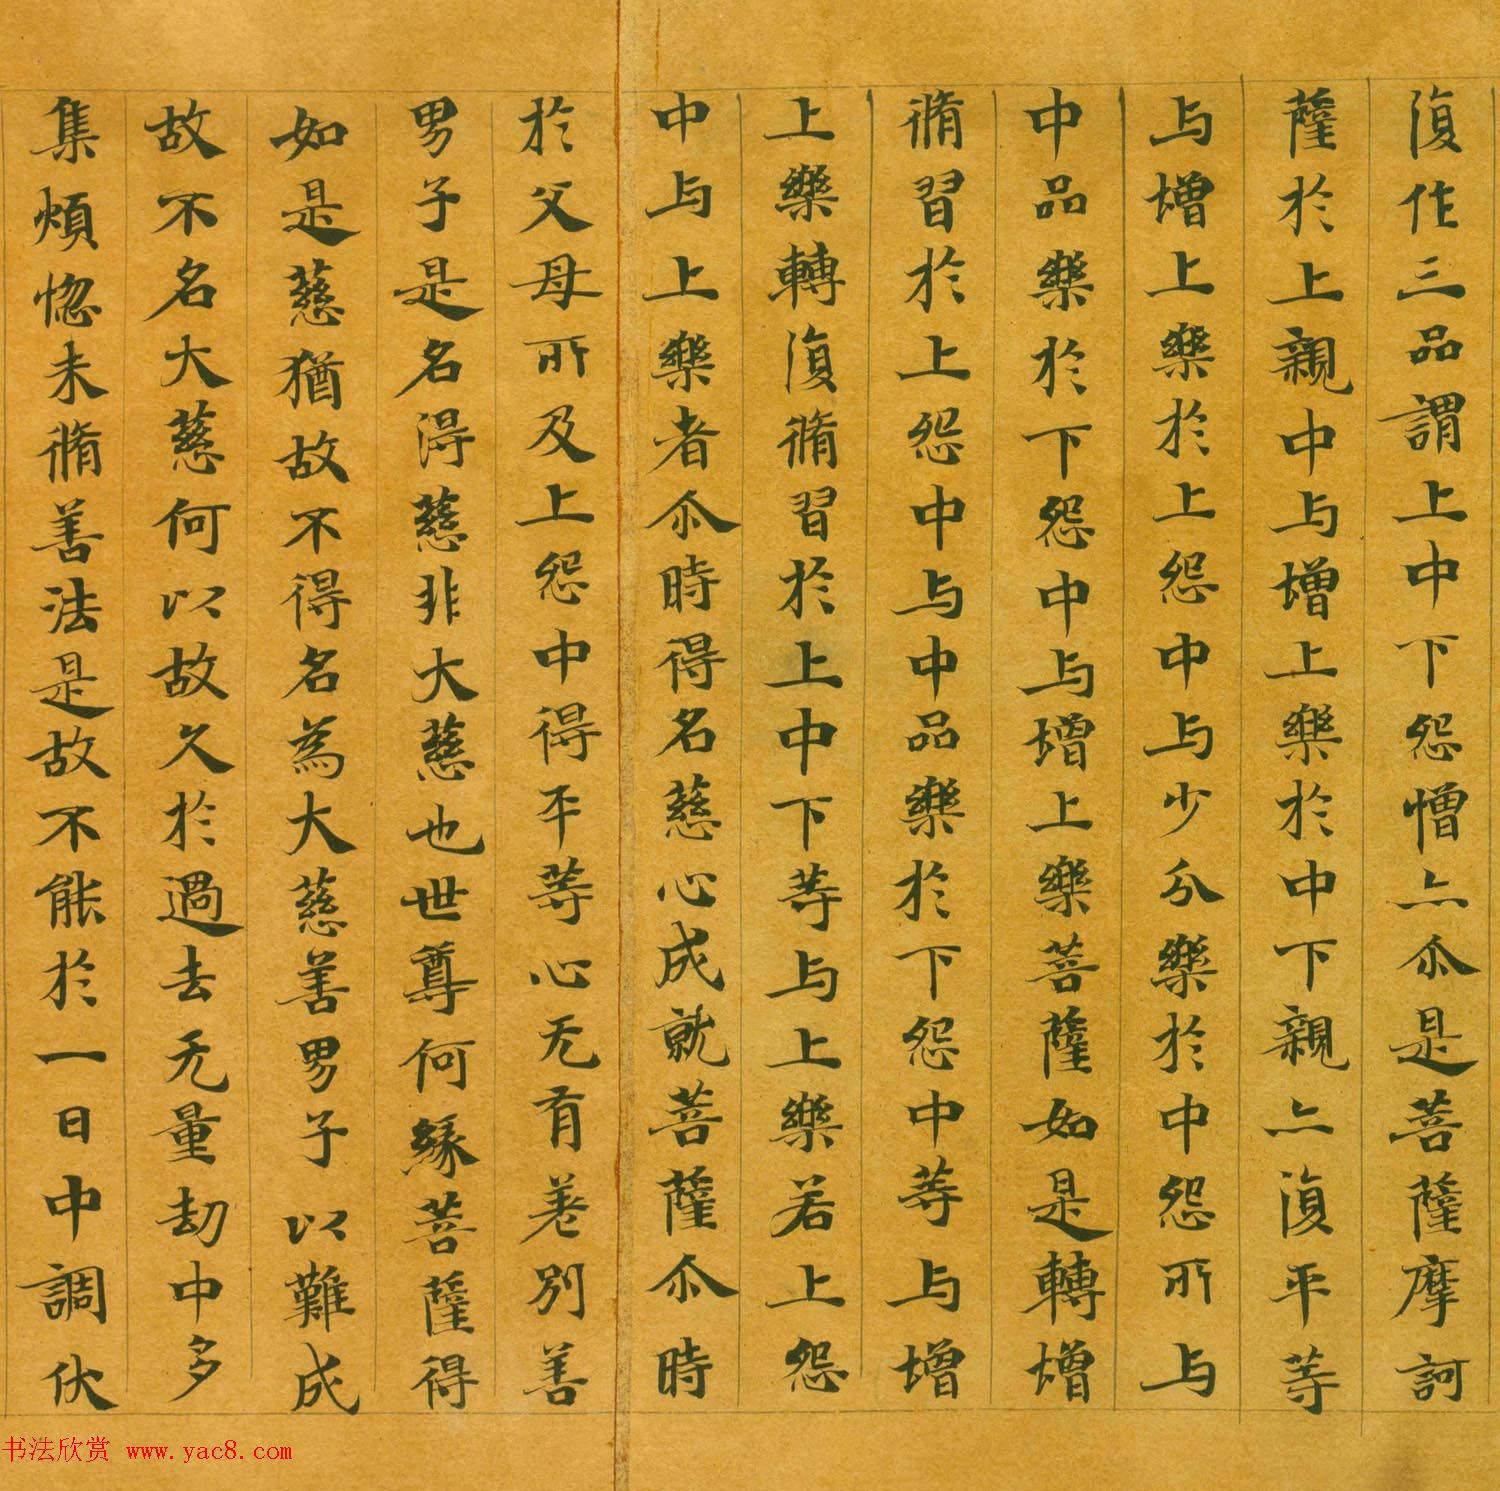 復作三品謂上中下怨憎亠尒是菩薩摩訶
薩於上親中与增上樂於中下親亠復平等
与增上樂於上怨中与少分樂於中怨所与
中品樂於下怨中与增上樂菩薩如是轉增
脩習於上怨中与中品樂於下怨中等与增
上樂轉復脩習於上中下等与上樂若上怨
中与上樂者尒時得名慈心成就菩薩尒時
於父母所及上怨中得平等心无有差別善
男子是名得慈非大慈也世尊何緣菩薩得
如是慈猶故不得名為大慈善男子以難成
故不名大慈何以故久於過去无量劫中多
集煩惱未脩善法是故不能於一日中調伏
书法欣赏 www.yac8.com